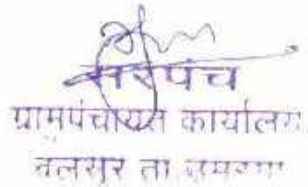 सरपंच
ग्रामपंचायत कार्यालय
तलसुर ता उमरगा